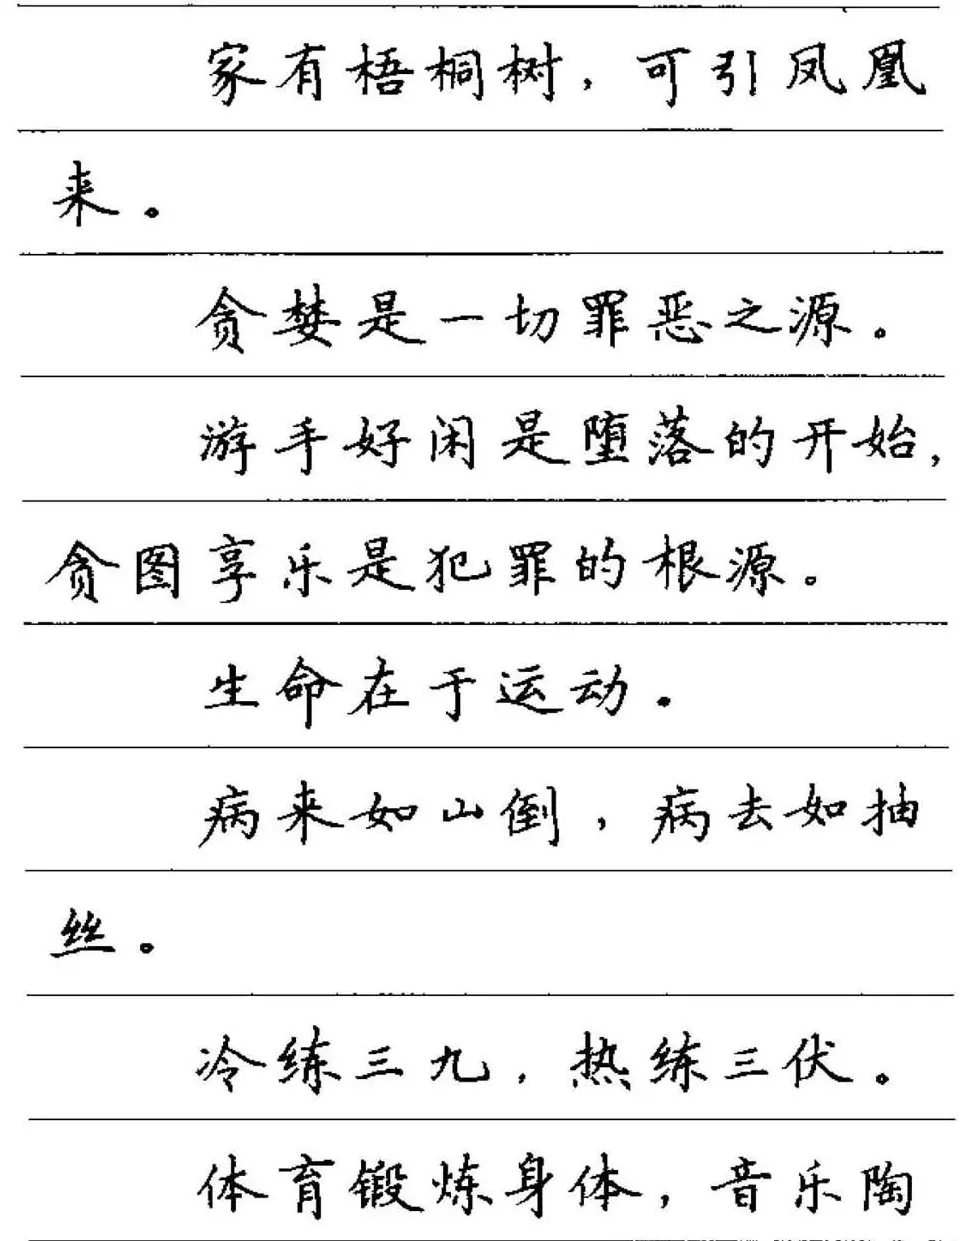 家有梧桐树，可引凤凰
来。
贪婪是一切罪恶之源。
游手好闲是堕落的开始，
贪图享乐是犯罪的根源。
生命在于运动。
病来如山倒，病去如抽
丝。
冷练三九，热练三伏。
体育锻炼身体，音乐陶